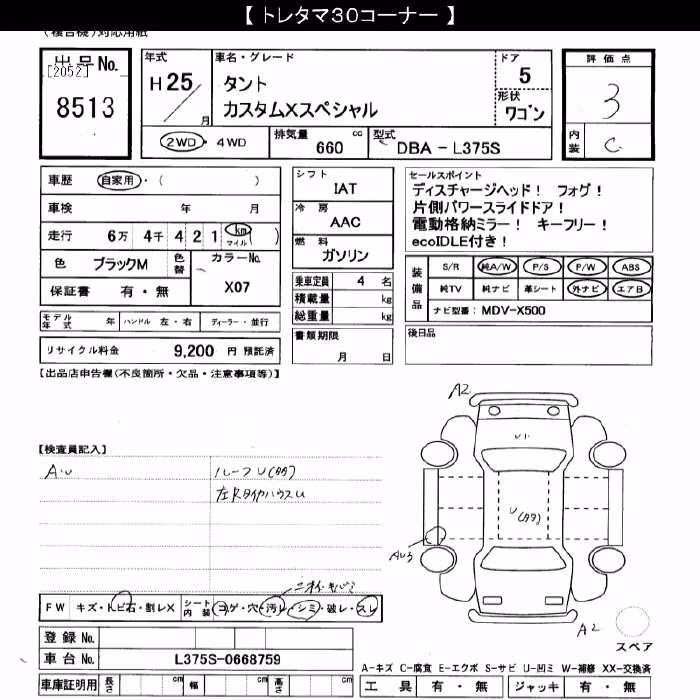 【 トレタマ30コーナー 】
(複合機)対応用紙
出品No.
[2052]
8513
年式
H 25 / 月
車名・グレード
タント
カスタムXスペシャル
ドア
5
形状
ワゴン
2WD・4WD
排気量 cc
660
型式
DBA - L375S
評価点
3
内装
C
車歴 自家用・( )
車検 年 月
走行 6万 4千 4 2 1 km マイル ( )
色 ブラックM 色替 カラーNo.
保証書 有・無 X07
モデル年式 年 ハンドル 左・右 ディーラー・並行
リサイクル料金 9,200 円 預託済
シフト
IAT
冷房
AAC
燃料
ガソリン
乗車定員 4 名
積載量 kg
総重量 kg
書類期限
月 日
セールスポイント
ディスチャージヘッド! フォグ!
片側パワースライドドア!
電動格納ミラー! キーフリー!
ecoIDLE付き!
装備品
S/R 純A/W P/S P/W ABS
純TV 純ナビ 革シート 外ナビ エアB
ナビ型番: MDV-X500
後日品
【出品店申告欄(不良箇所・欠品・注意事項等)】
【検査員記入】
A・U
ルーフU(タタ)
左Rタイヤハウスu
A2
U1
U(タタ)
AU3
A2
スペア
FW キズ・トビ石・割レX シート内装 コゲ・穴・汚レ・シミ・破レ・スレ
登録No.
車台No. L375S-0668759
車庫証明用 長さ cm 幅 cm 高さ cm
A-キズ C-腐食 E-エクボ S-サビ U-凹ミ W-補修 XX-交換済
工具 有・無 ジャッキ 有・無